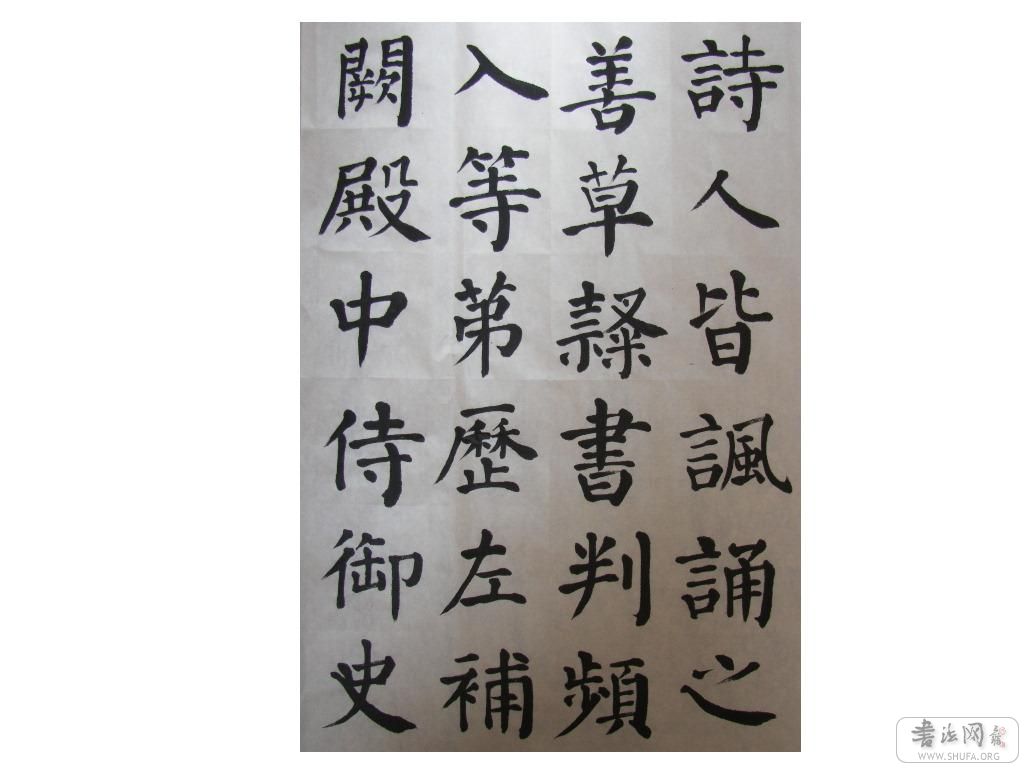 詩人皆諷誦之
善草隸書判頻
入等第歷左補
闕殿中侍御史
書法网
WWW.SHUFA.ORG